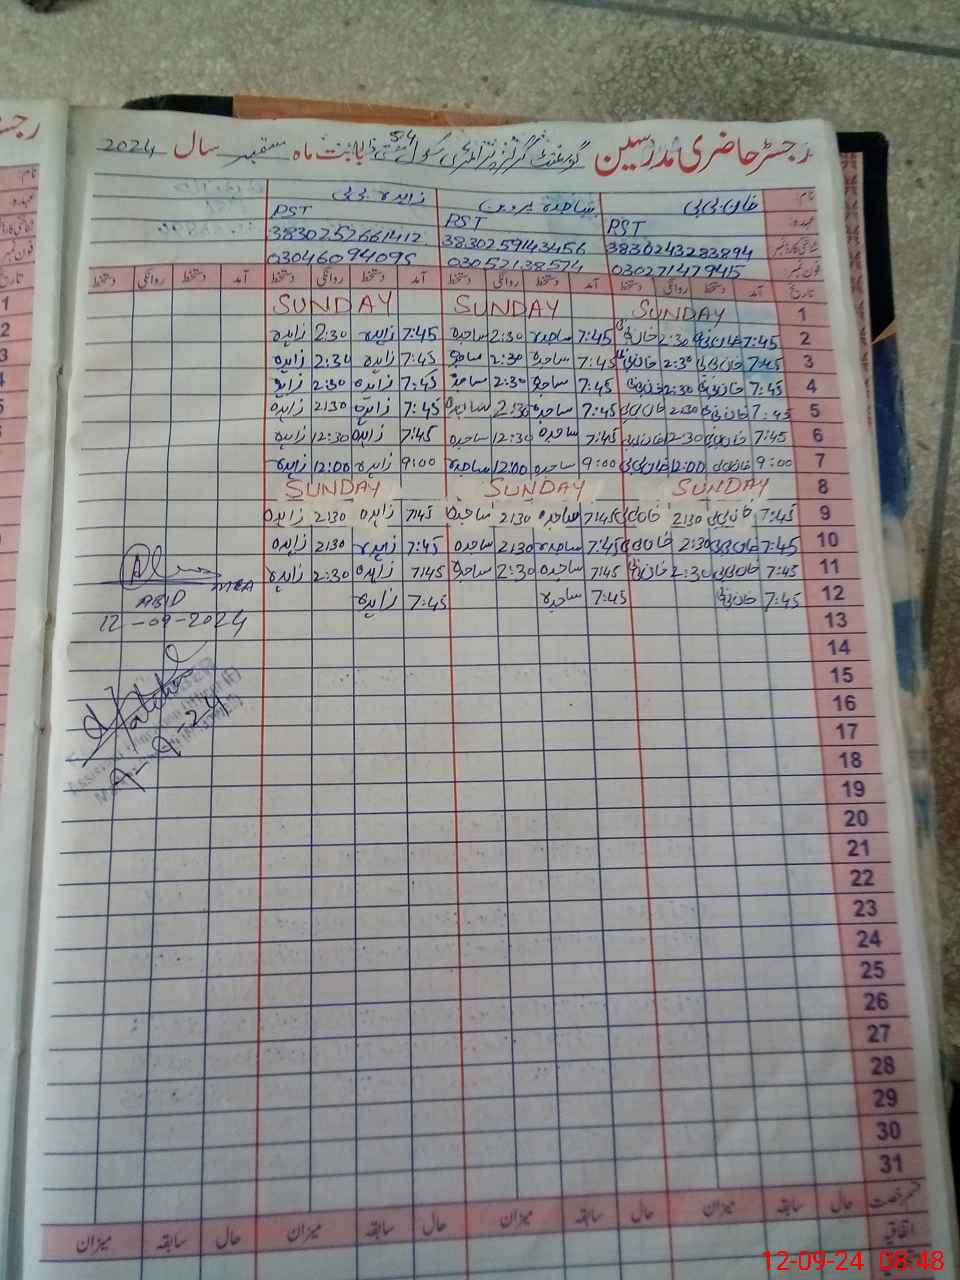 رجسٹر حاضری مدرسین گورنمنٹ گرلز پرائمری سکول بستی بابت ماہ ستمبر سال 2024
نام: خان بی بی ساجدہ پروین زاہدہ بی بی
عہدہ: PST PST PST
شناختی کارڈ نمبر 3830243283894 3830259143456 3830252661412
فون نمبر 03027147945 03052138574 03046094095
تاریخ آمد دستخط روانگی دستخط آمد دستخط روانگی دستخط آمد دستخط روانگی دستخط آمد دستخط روانگی دستخط
1 SUNDAY SUNDAY SUNDAY
2 7:45 خان بی بی 2:30 خان بی بی 7:45 ساجدہ 2:30 ساجدہ 7:45 زاہدہ 2:30 زاہدہ
3 7:45 خان بی بی 2:30 خان بی بی 7:45 ساجدہ 2:30 ساجدہ 7:45 زاہدہ 2:30 زاہدہ
4 7:45 خان بی بی 2:30 خان بی بی 7:45 ساجدہ 2:30 ساجدہ 7:45 زاہدہ 2:30 زاہدہ
5 7:45 خان بی بی 2:30 خان بی بی 7:45 ساجدہ 2:30 ساجدہ 7:45 زاہدہ 2:30 زاہدہ
6 7:45 خان بی بی 12:30 خان بی بی 7:45 ساجدہ 12:30 ساجدہ 7:45 زاہدہ 12:30 زاہدہ
7 9:00 خان بی بی 12:00 خان بی بی 9:00 ساجدہ 12:00 ساجدہ 9:00 زاہدہ 12:00 زاہدہ
8 SUNDAY SUNDAY SUNDAY
9 7:45 خان بی بی 2:30 خان بی بی 7:45 ساجدہ 2:30 ساجدہ 7:45 زاہدہ 2:30 زاہدہ
10 7:45 خان بی بی 2:30 خان بی بی 7:45 ساجدہ 2:30 ساجدہ 7:45 زاہدہ 2:30 زاہدہ
11 7:45 خان بی بی 2:30 خان بی بی 7:45 ساجدہ 2:30 ساجدہ 7:45 زاہدہ 2:30 زاہدہ
MEA
12 7:45 خان بی بی 7:45 ساجدہ 7:45 زاہدہ
ABID
13
12-09-2024
14
15
16
17
18
19
20
21
22
23
24
25
26
27
28
29
30
31
قسم رخصت حال سابقہ میزان حال سابقہ میزان حال سابقہ میزان حال سابقہ میزان
اتفاقیہ
12-09-24 08:48